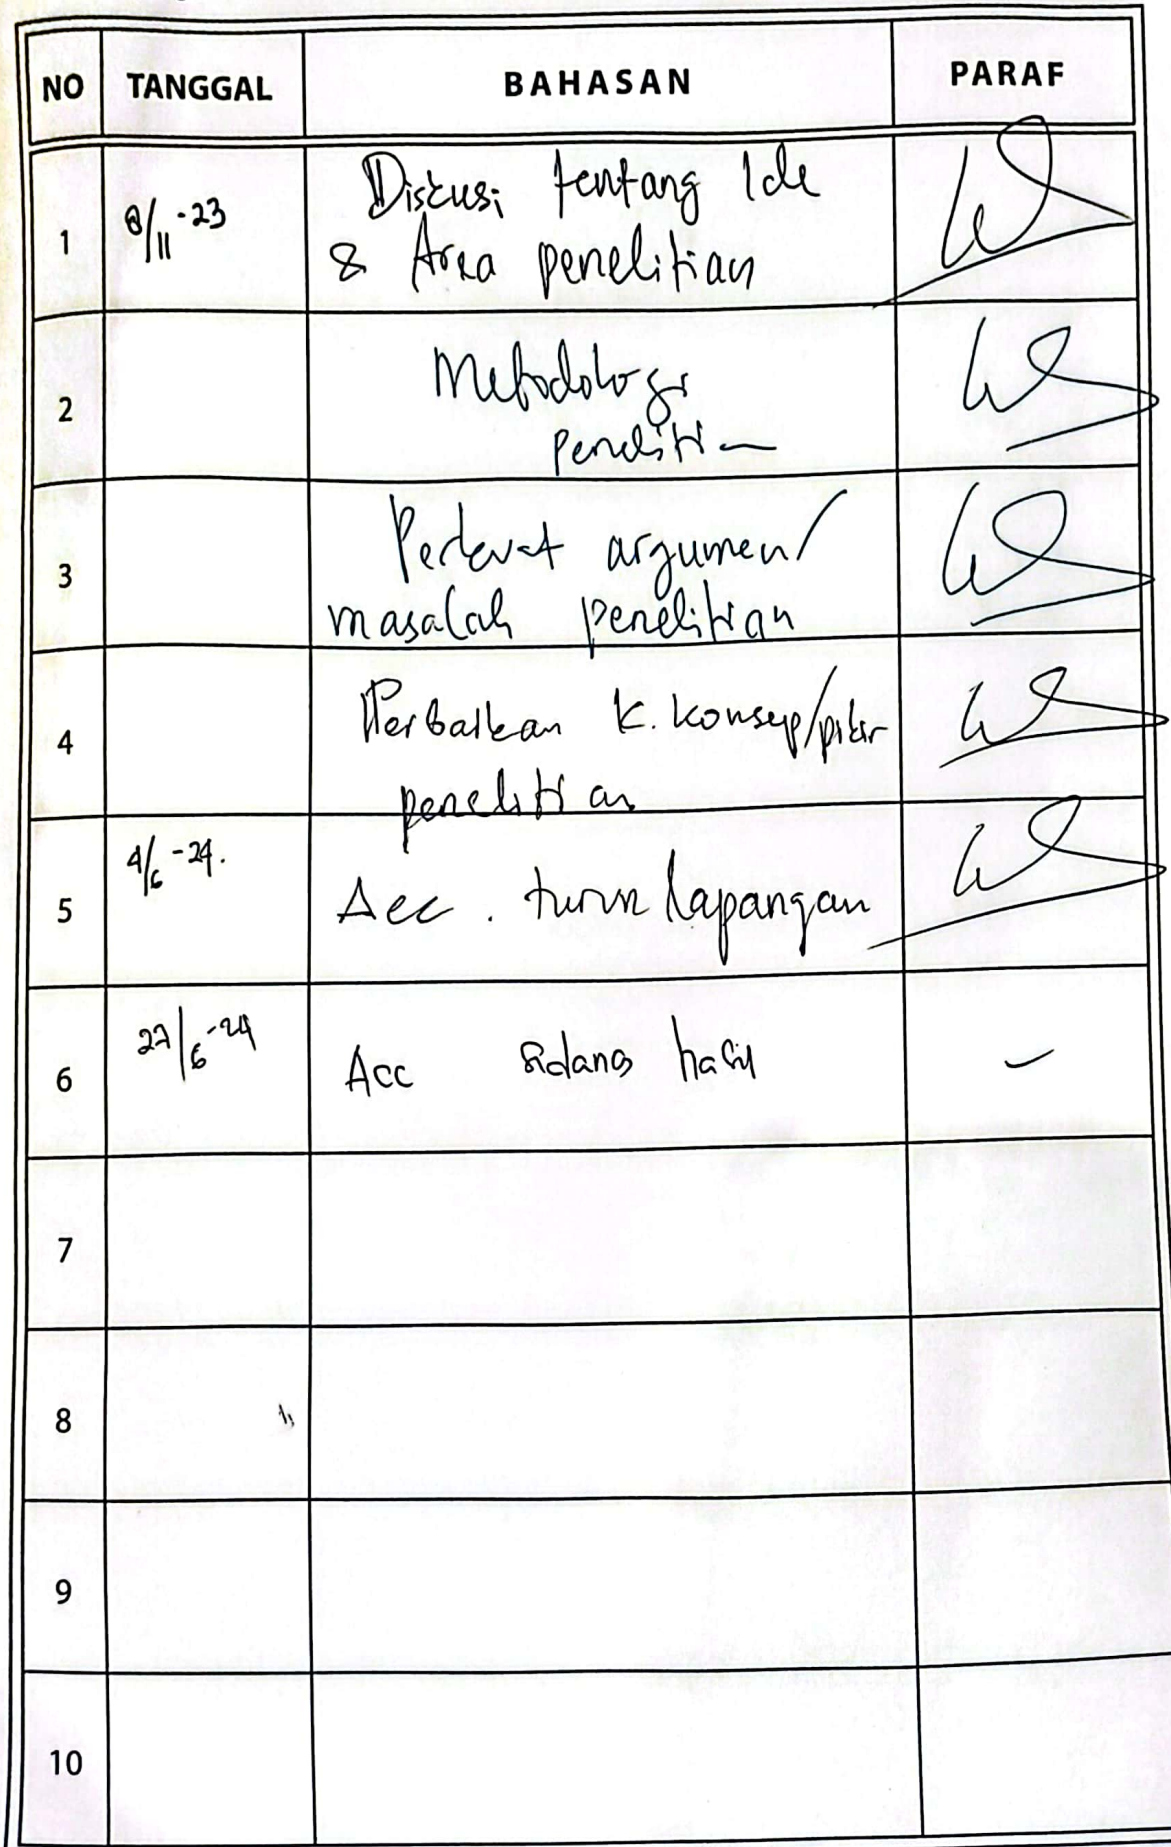 NO TANGGAL BAHASAN PARAF
1 8/11-23 Diskusi tentang Ide
& Area penelitian
2 Metodologi
penelitian
3 Perkuat argumen/
masalah penelitian
4 Perbaikan K. Konsep/pikir
penelitian
5 4/6-24. Acc. turun lapangan
6 27/6-24 Acc sidang hasil -
7
8
9
10